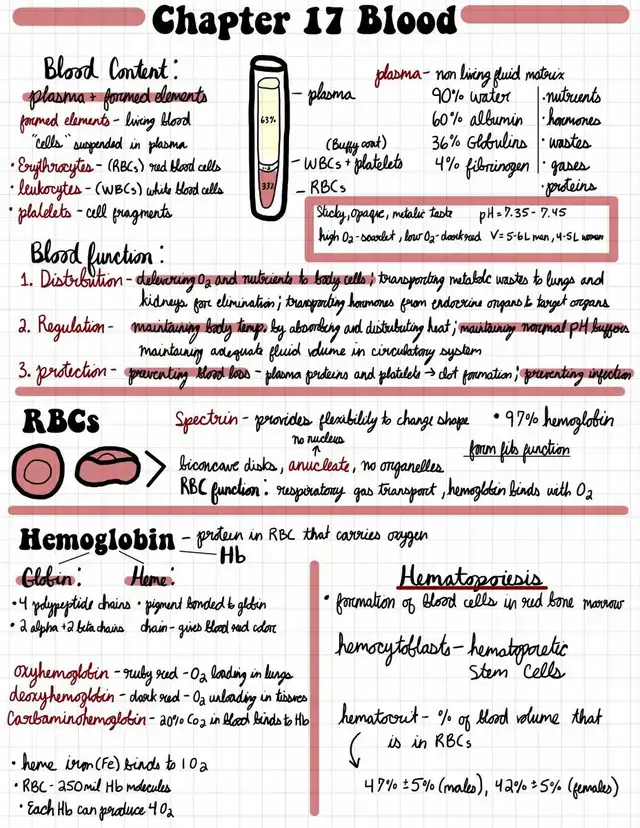 Chapter 17 Blood
Blood Content:
plasma + formed elements
formed elements - living blood
"cells" suspended in plasma
• Erythrocytes - (RBCs) red blood cells
• leukocytes - (WBCs) white blood cells
• platelets - cell fragments
63%
33%
plasma
(Buffy coat)
WBCs + platelets
RBCs
plasma - non living fluid matrix
90% water
60% albumin
36% Globulins
4% fibrinogen
• nutrients
• hormones
• wastes
• gases
• proteins
Sticky, opaque, metalic taste pH = 7.35 - 7.45
high O2 - scarlet, low O2 - dark red V = 5-6L men, 4-5L women
Blood function:
1. Distribution - delivering O2 and nutrients to body cells; transporting metabolic wastes to lungs and
kidneys for elimination; transporting hormones from endocrine organs to target organs
2. Regulation - maintaining body temp. by absorbing and distributing heat; maintaining normal pH buffers
maintaining adequate fluid volume in circulatory system
3. protection - preventing blood loss - plasma proteins and platelets → clot formation; preventing infection
RBCs
Spectrin - provides flexibility to change shape
• 97% hemoglobin
no nucleus
form fits function
biconcave disks, anucleate, no organelles
RBC function: respiratory gas transport, hemoglobin binds with O2
Hemoglobin - protein in RBC that carries oxygen
Hb
Globin:
• 4 polypeptide chains
• 2 alpha + 2 beta chains
Heme:
• pigment bonded to globin
chain - gives blood red color
oxyhemoglobin - ruby red - O2 loading in lungs
deoxyhemoglobin - dark red - O2 unloading in tissues
Carbaminohemoglobin - 20% Co2 in blood binds to Hb
• heme iron (Fe) binds to 1 O2
• RBC - 250 mil Hb molecules
• Each Hb can produce 4 O2
Hematopoiesis
• formation of blood cells in red bone marrow
hemocytoblasts - hematopoietic
Stem Cells
hematocrit - % of blood volume that
is in RBCs
47% ± 5% (males), 42% ± 5% (females)